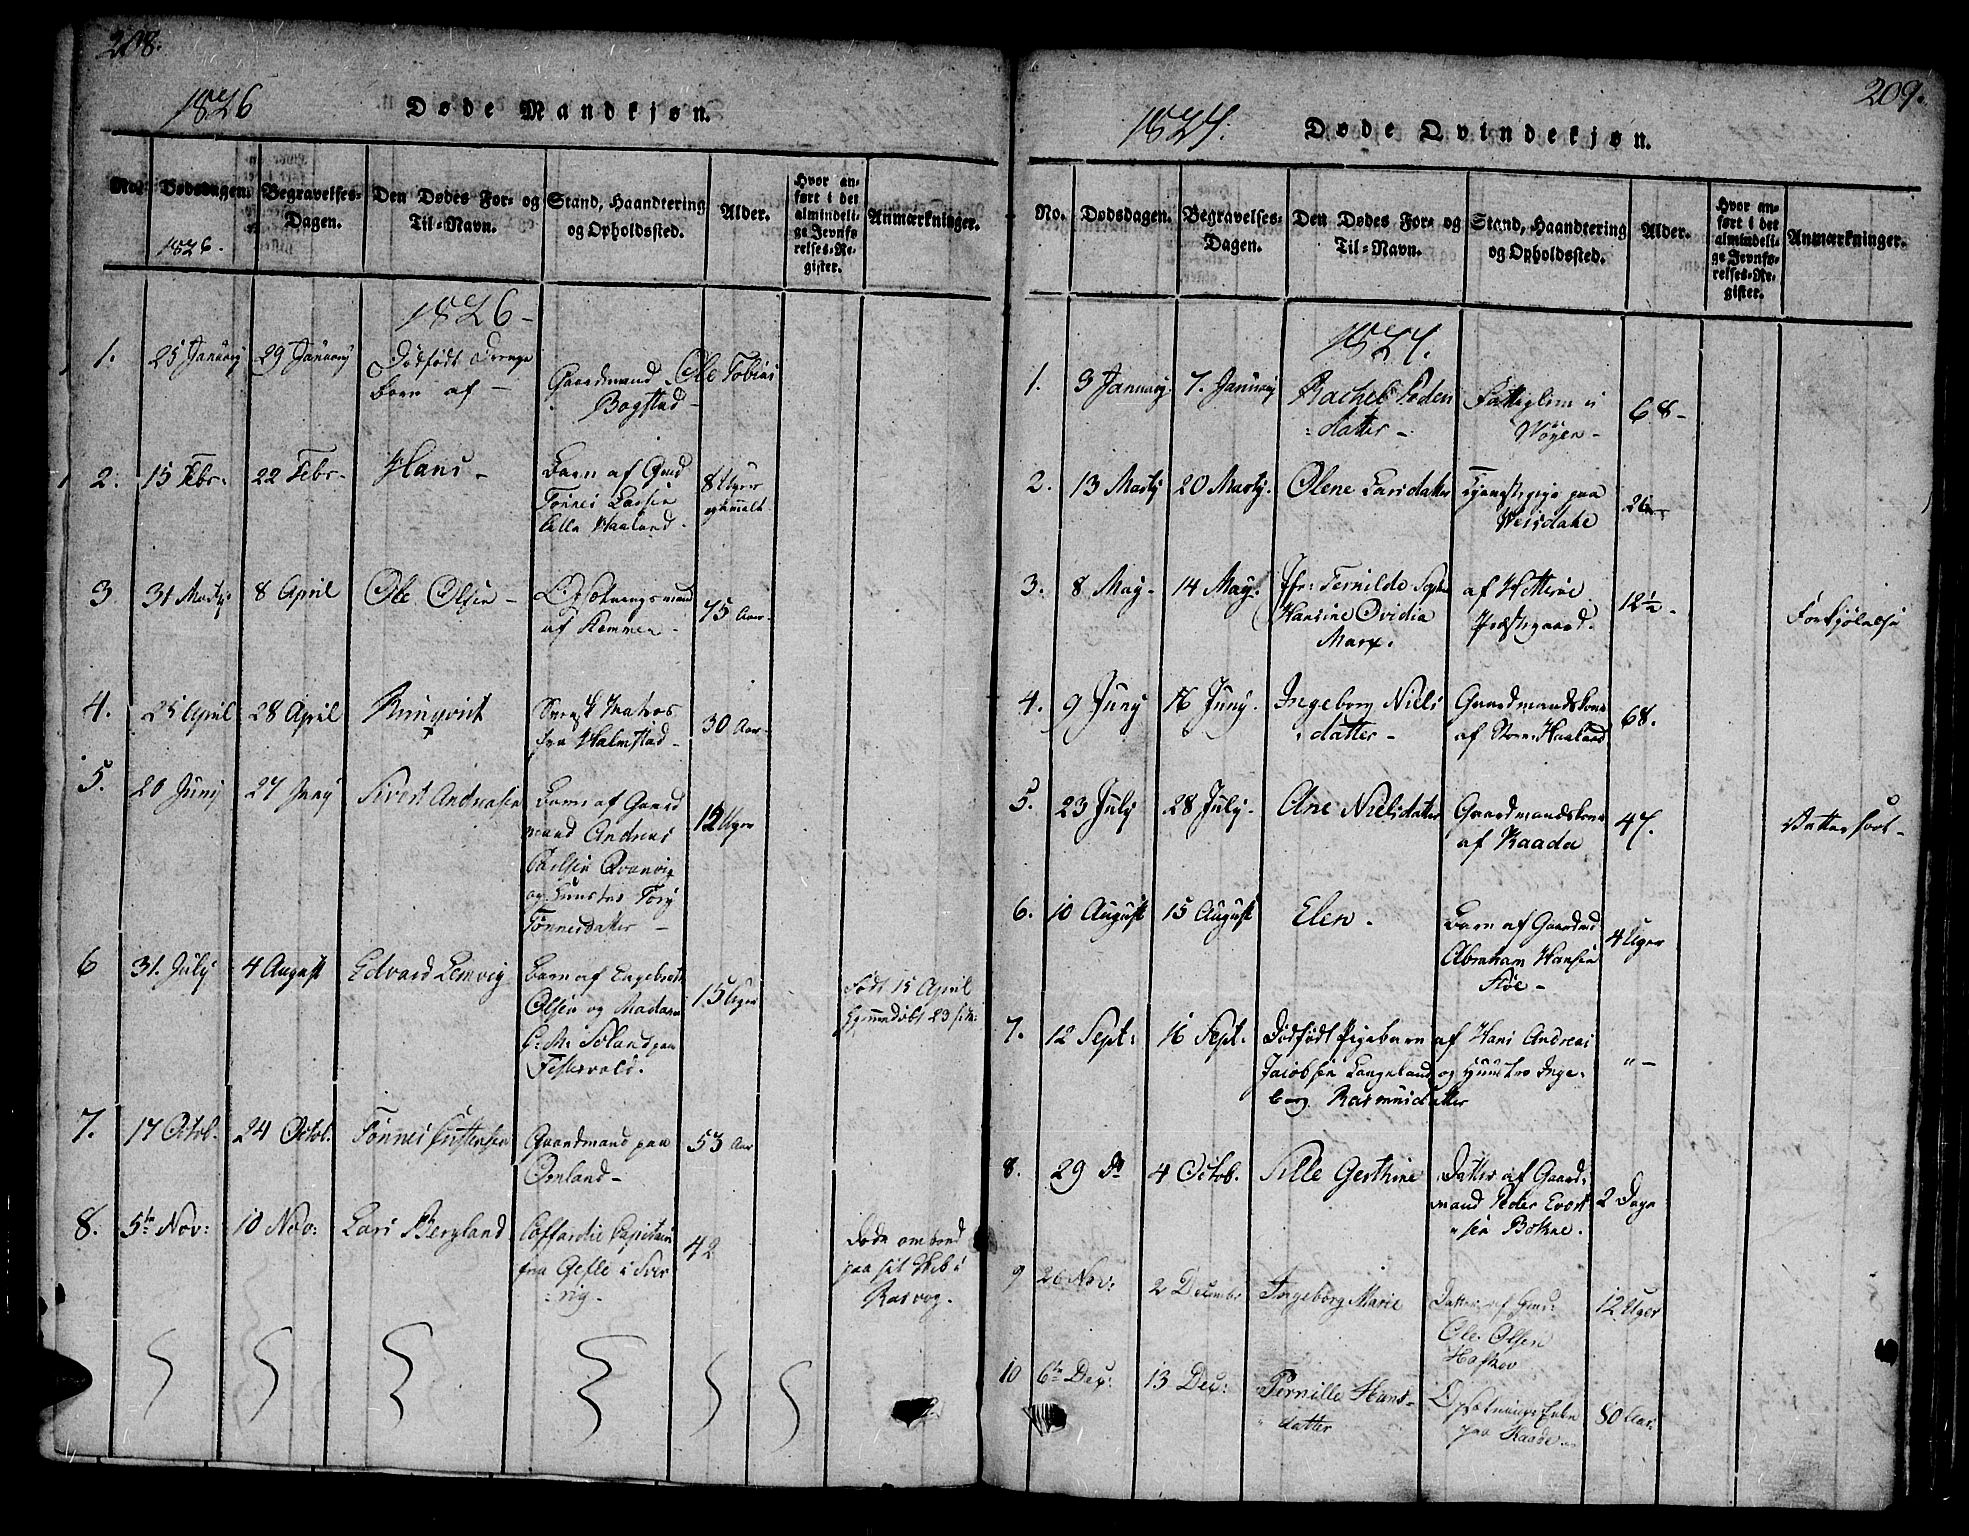 208.
1826
Døde Mandkjøn.
No.
Dødsdagen.
Begravelses-
Dagen.
Den Dødes For- og
Til-Navn.
Stand, Haandtering
og Opholdssted.
Alder.
Hvor an-
ført i det
almindeli-
ge Jevnfø-
relses-Re-
gister.
Anmærkninger.
1826.
1826-
1. 25 January 29 January Dødfødt Drenge
barn af -
Gaardmand Ole Tobias
Bogstad -
2. 15 Febr: 22 Febr- Hans -
Barn af Gmd
Tønnes
Lille Haaland.
8 Uger
gammelt
3 31 Marty 8 April Ole Olsen -
af Kommen -
75 Aar.
4. 25 April 28 April
Svensk Matros
fra Halmstad -
30 Aar-
5. 20 Juny 27 Juny Sivert Andreasen
Barn af Gaard
mand Andreas
og Hustrue
Tønnesdatter -
12 Uger
6 31. July 4 August Edvard Lemvig
Barn af Engebreth
Olsen og Madame
Søland paa
15 Uger
Født 15 April
hjemmedøbt 23
7. 17 Octob. 24 Octob. Tønnes
Gaardmand paa
Omland -
53 Aar
8. 5te Nov: 10 Nov: Lars Bergland
Coffardie Capitain
fra Gefle i Sver
rig.
42
Døde ombord
paa sit Skib i
Rasvog.
209.
1827.
Døde Qvindekjøn.
No.
Dødsdagen.
Begravelses-
Dagen.
Den Dødes For- og
Til-Navn.
Stand, Haandtering
og Opholdssted.
Alder.
Hvor an-
ført i det
almindeli-
ge Jevnfø-
relses-Re-
gister.
Anmærkninger.
1827.
1. 3 January. 7. January Rachel Peders
datter -
Fattiglem i
68-
2. 13 Marty 20 Marty. Olene Larsdatter
Tjenestepige paa
Weisdahl
3. 8 May - 14 May. Jfr: Pernilde
Hansine Ovidia
Marx.
af Hitterøe
Præstegaard.
12½ -
Forkjølelse
4. 9 Juny 16 Juny. Ingeborg Niels
datter -
Gaardmandskone
af Store Haaland
68.
5. 23 July 28 July. Ane Nielsdatter
Gaardmandskone
af Raade
47.
Vattersoot -
6. 10 August 15 August Elen.
Barn af Gaardmd
Abraham Hansen
4 Uger
7. 12 Sept: 16 Sept. Dødfødt Pigebarn af Hans Andreas
Jacobsen Langeland og Hustro Inge-
borg Rasmusdatter
" -
8. 29 Do 4 Octob. Sille Gerthine
Datter af Gaard-
mand Peder Evert
sen
2 Dage
9 26 Nov: 2 December Ingeborg Marie
Datter af Gmd:
Ole Olsen
12 Uger
10 6te Dec: 13 Dec: Pernille Hans-
datter
paa Raade
80 Aar.